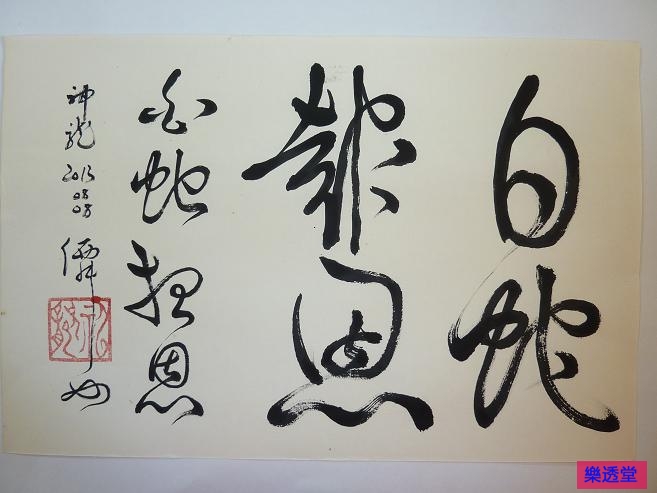 白蛇
報恩
白蛇報恩
神龍 2013 08 08
樂透堂